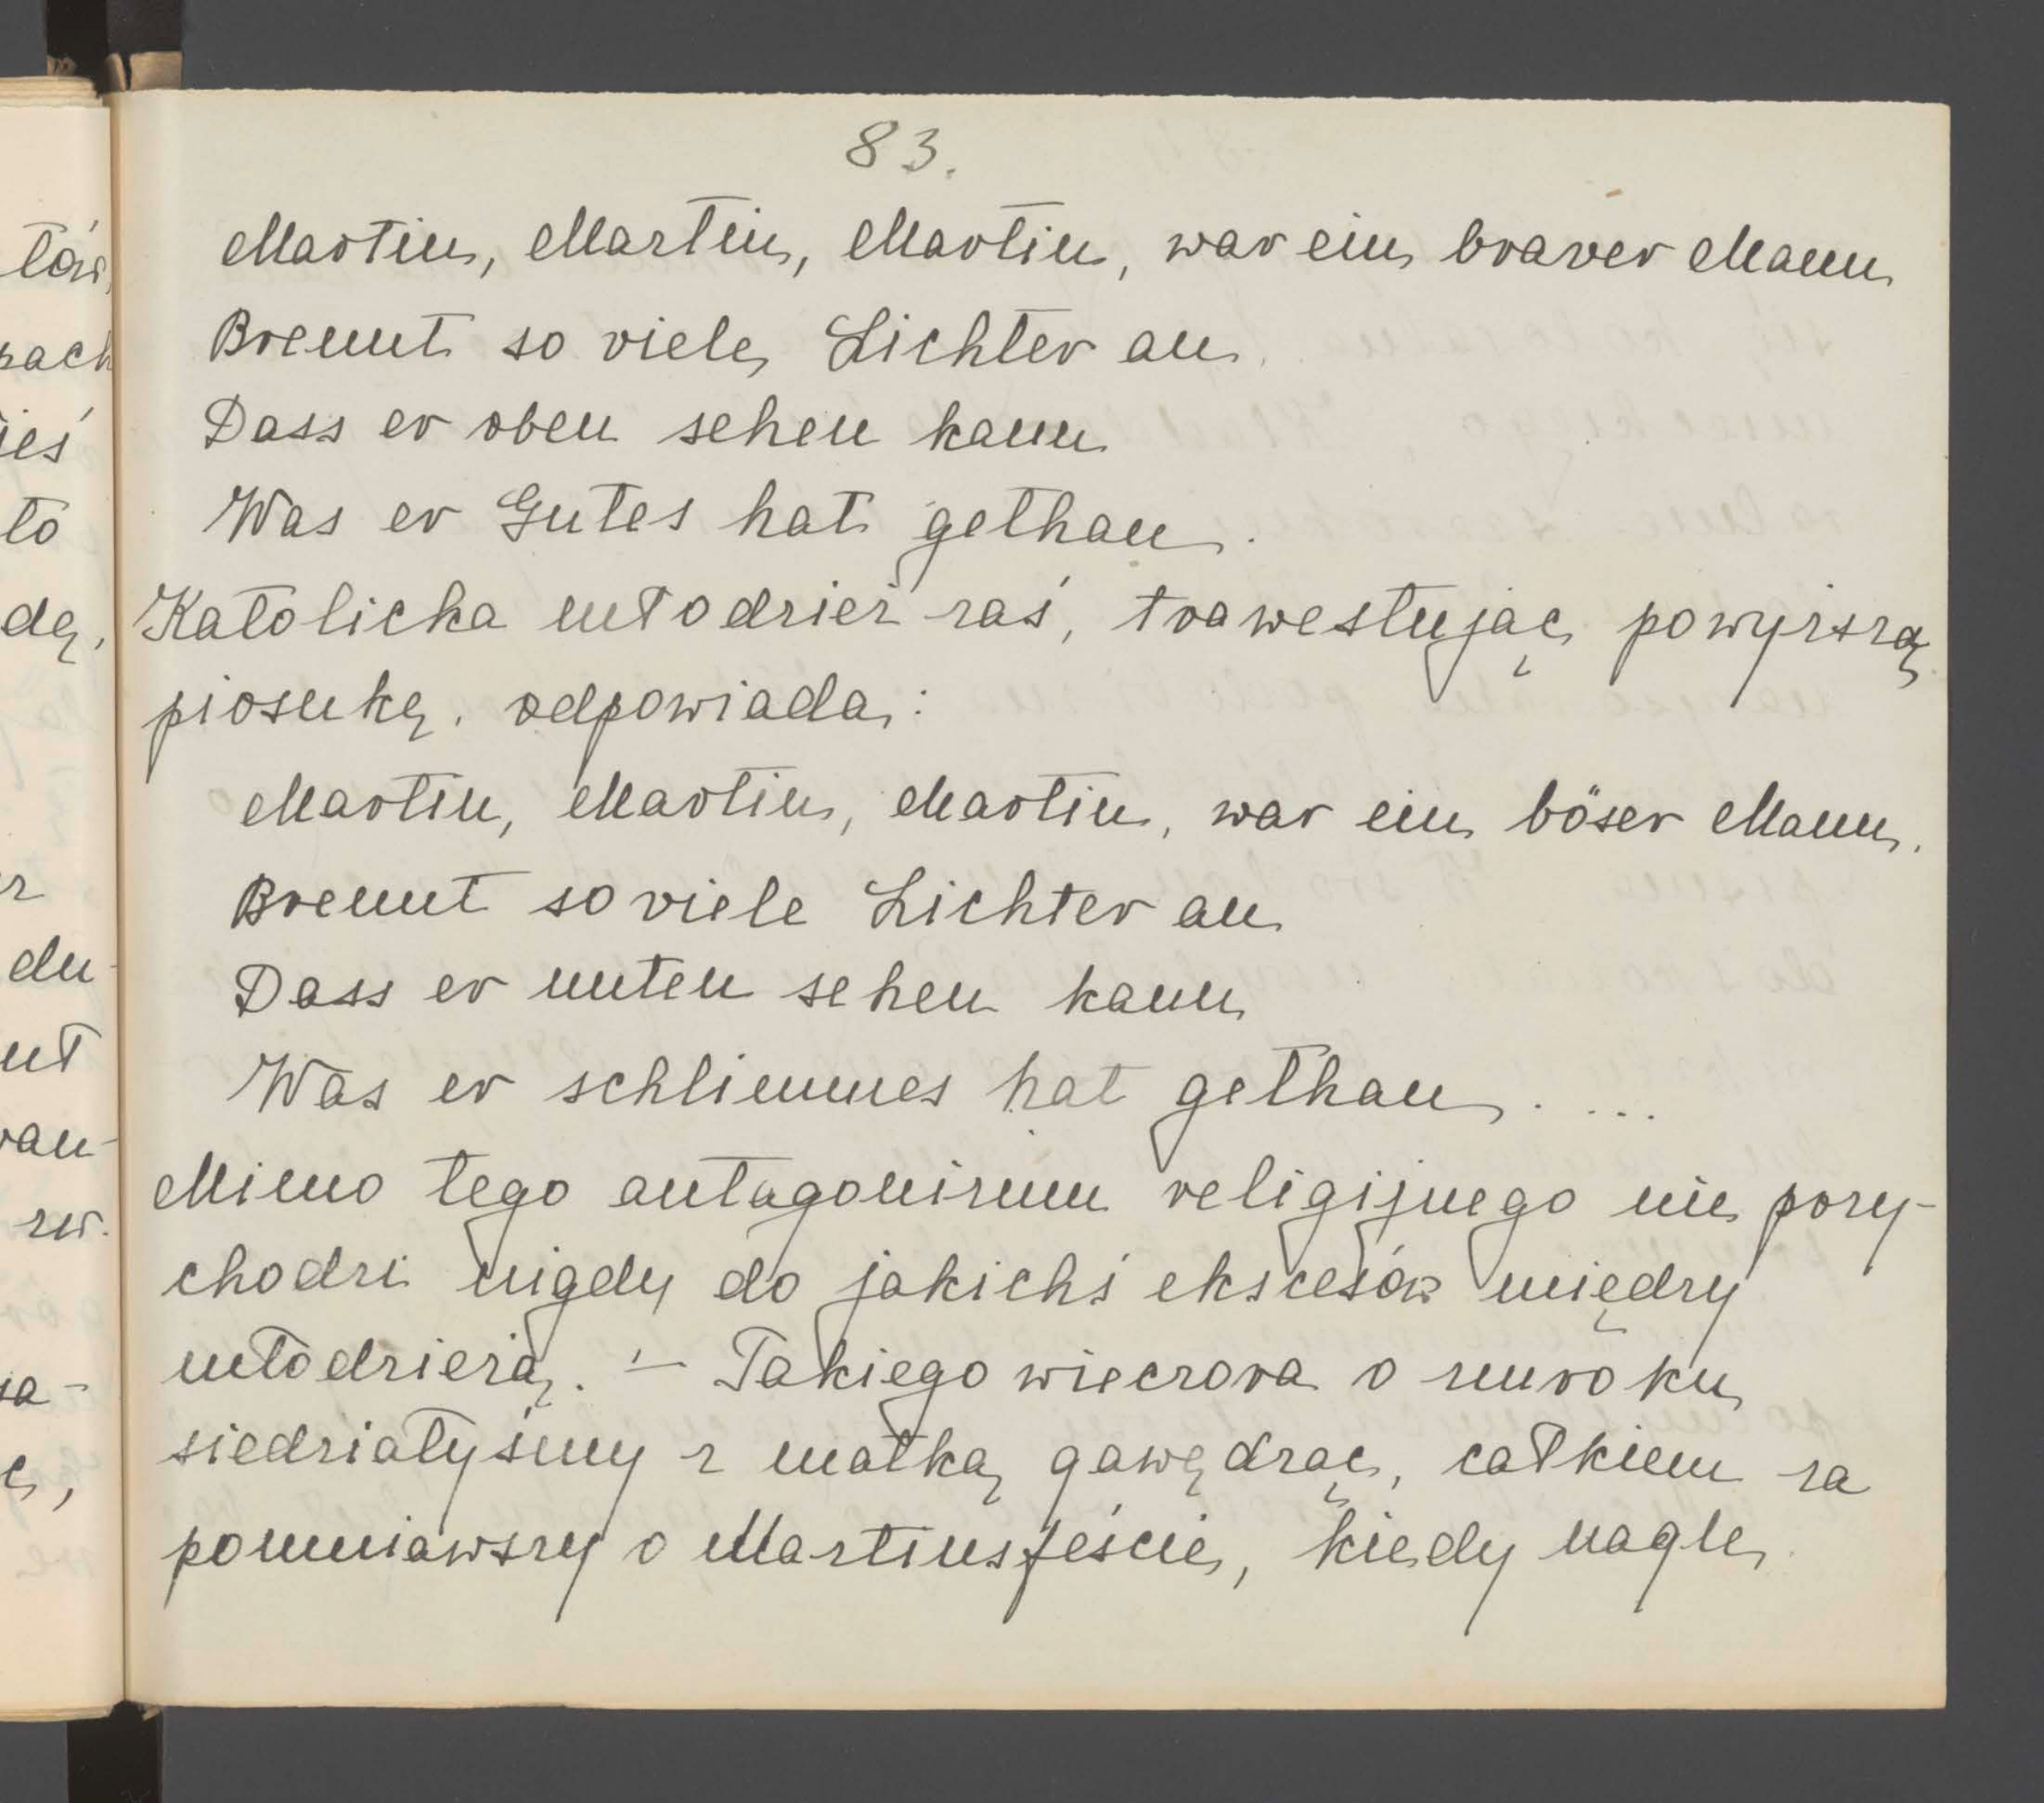 83.
Martin, Martin, Martin, war ein braver Mann
Brennt so viele Lichter an
Dass er oben sehen kann
Was er Gutes hat gethan.
Katolicka młodzież zaś, trawestując powyższą
piosnkę, odpowiada:
Martin, Martin, Martin, war ein böser Mann.
Brennt so viele Lichter an
Dass er unten sehen kann
Was er schlimmes hat gethan. ...
Mimo tego antagonizmu religijnego nie przy-
chodzi nigdy do jakichś ekscesów między
młodzieżą. — Takiego wieczora o zmroku
siedziałyśmy z matką gawędząc, całkiem za
pomniawszy o Martinsfeście, kiedy nagle